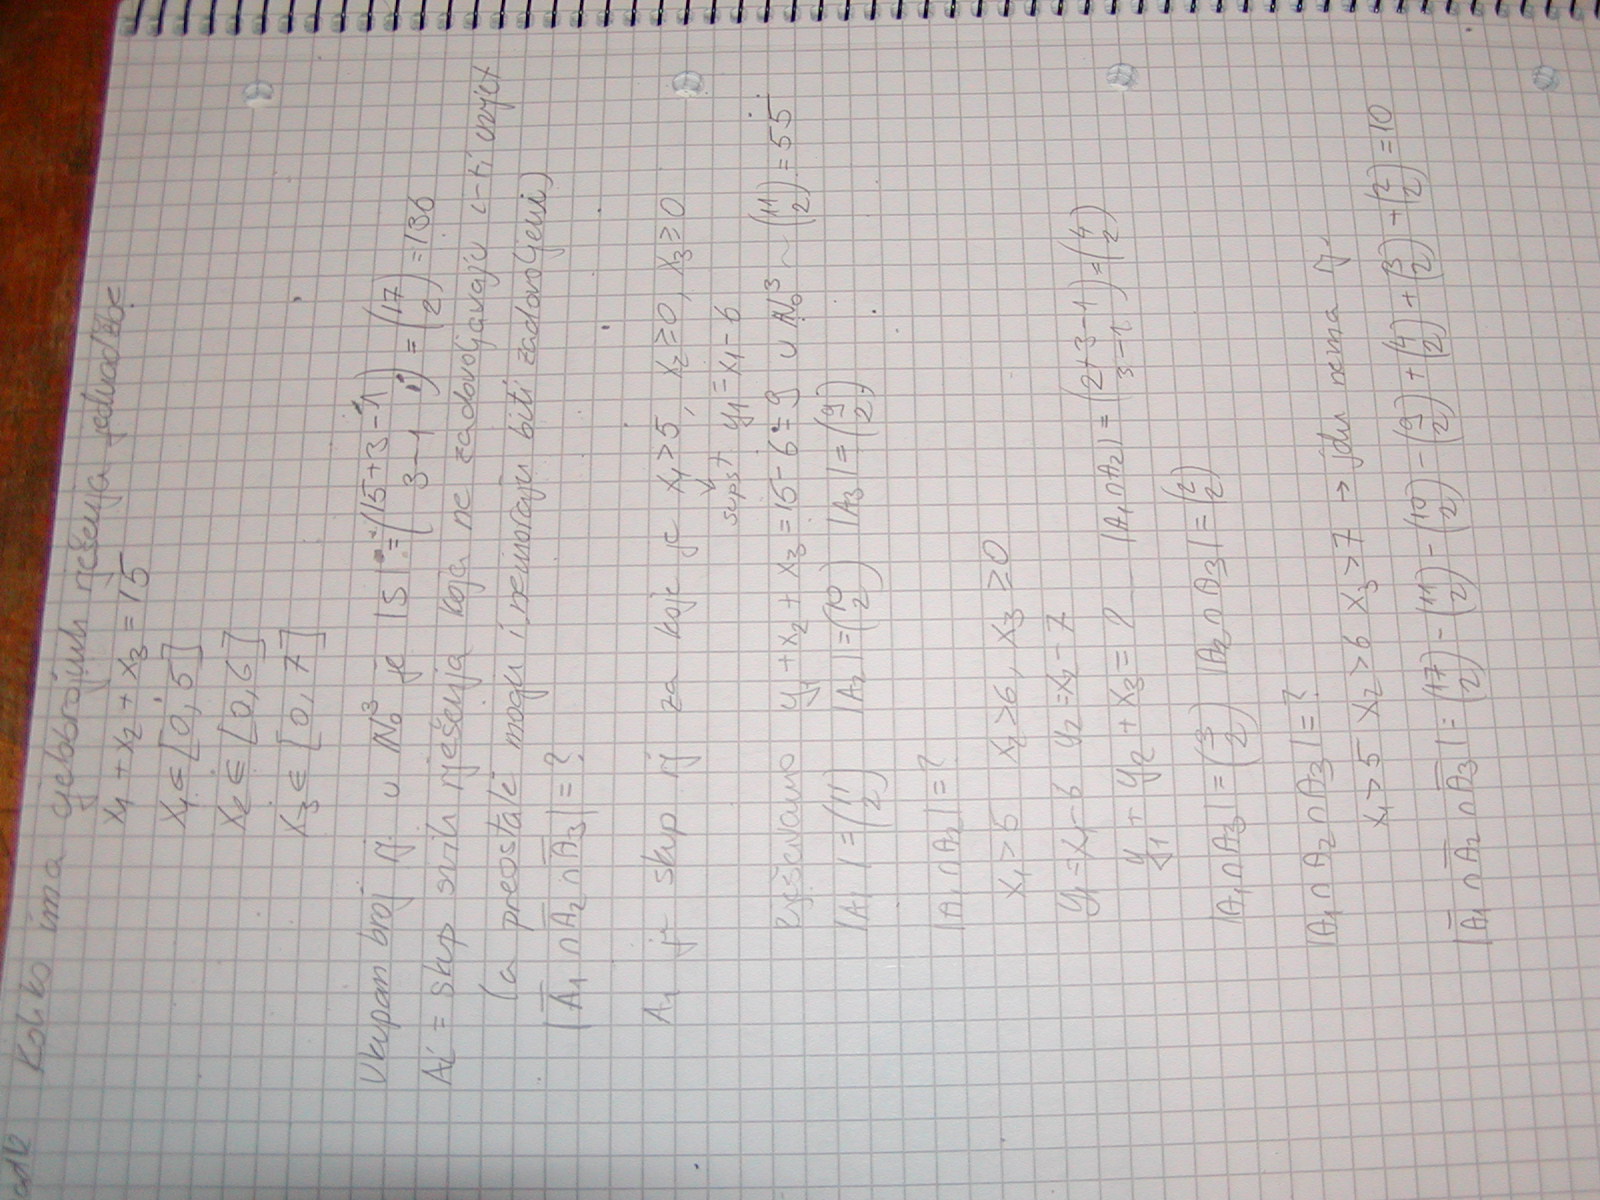 Koliko ima cjelobrojnih rješenja jednadžbe
x₁ + x₂ + x₃ = 15
x₁ ∈ [0, 5]
x₂ ∈ [0, 6]
x₃ ∈ [0, 7]
Ukupan broj rj. u ℕ₀³ je |S| = (15+3-1 / 3-1) = (17 / 2) = 136
Ai = skup svih rješenja koja ne zadovoljavaju i-ti uvjet
(a preostale mogu i nemoraju biti zadovoljeni)
|A̅₁ ∩ A̅₂ ∩ A̅₃| = ?
A₁ je skup rj za koje je x₁ > 5, x₂ ≥ 0, x₃ ≥ 0
supst y₁ = x₁ - 6
Rješavamo y₁ + x₂ + x₃ = 15 - 6 = 9 u ℕ₀³ ~ (11 / 2) = 55
|A₁| = (11 / 2) |A₂| = (10 / 2) |A₃| = (9 / 2)
|A₁ ∩ A₂| = ?
x₁ > 5 x₂ > 6, x₃ ≥ 0
y₁ = x₁ - 6 y₂ = x₂ - 7
y₁ + y₂ + x₃ = 2 |A₁ ∩ A₂| = (2+3-1 / 3-1) = (4 / 2)
|A₁ ∩ A₃| = (3 / 2) |A₂ ∩ A₃| = (2 / 2)
|A₁ ∩ A₂ ∩ A₃| = ?
x₁ > 5 x₂ > 6 x₃ > 7 → jdn nema rj.
|A̅₁ ∩ A̅₂ ∩ A̅₃| = (17 / 2) - (11 / 2) - (10 / 2) - (9 / 2) + (4 / 2) + (3 / 2) + (2 / 2) = 10